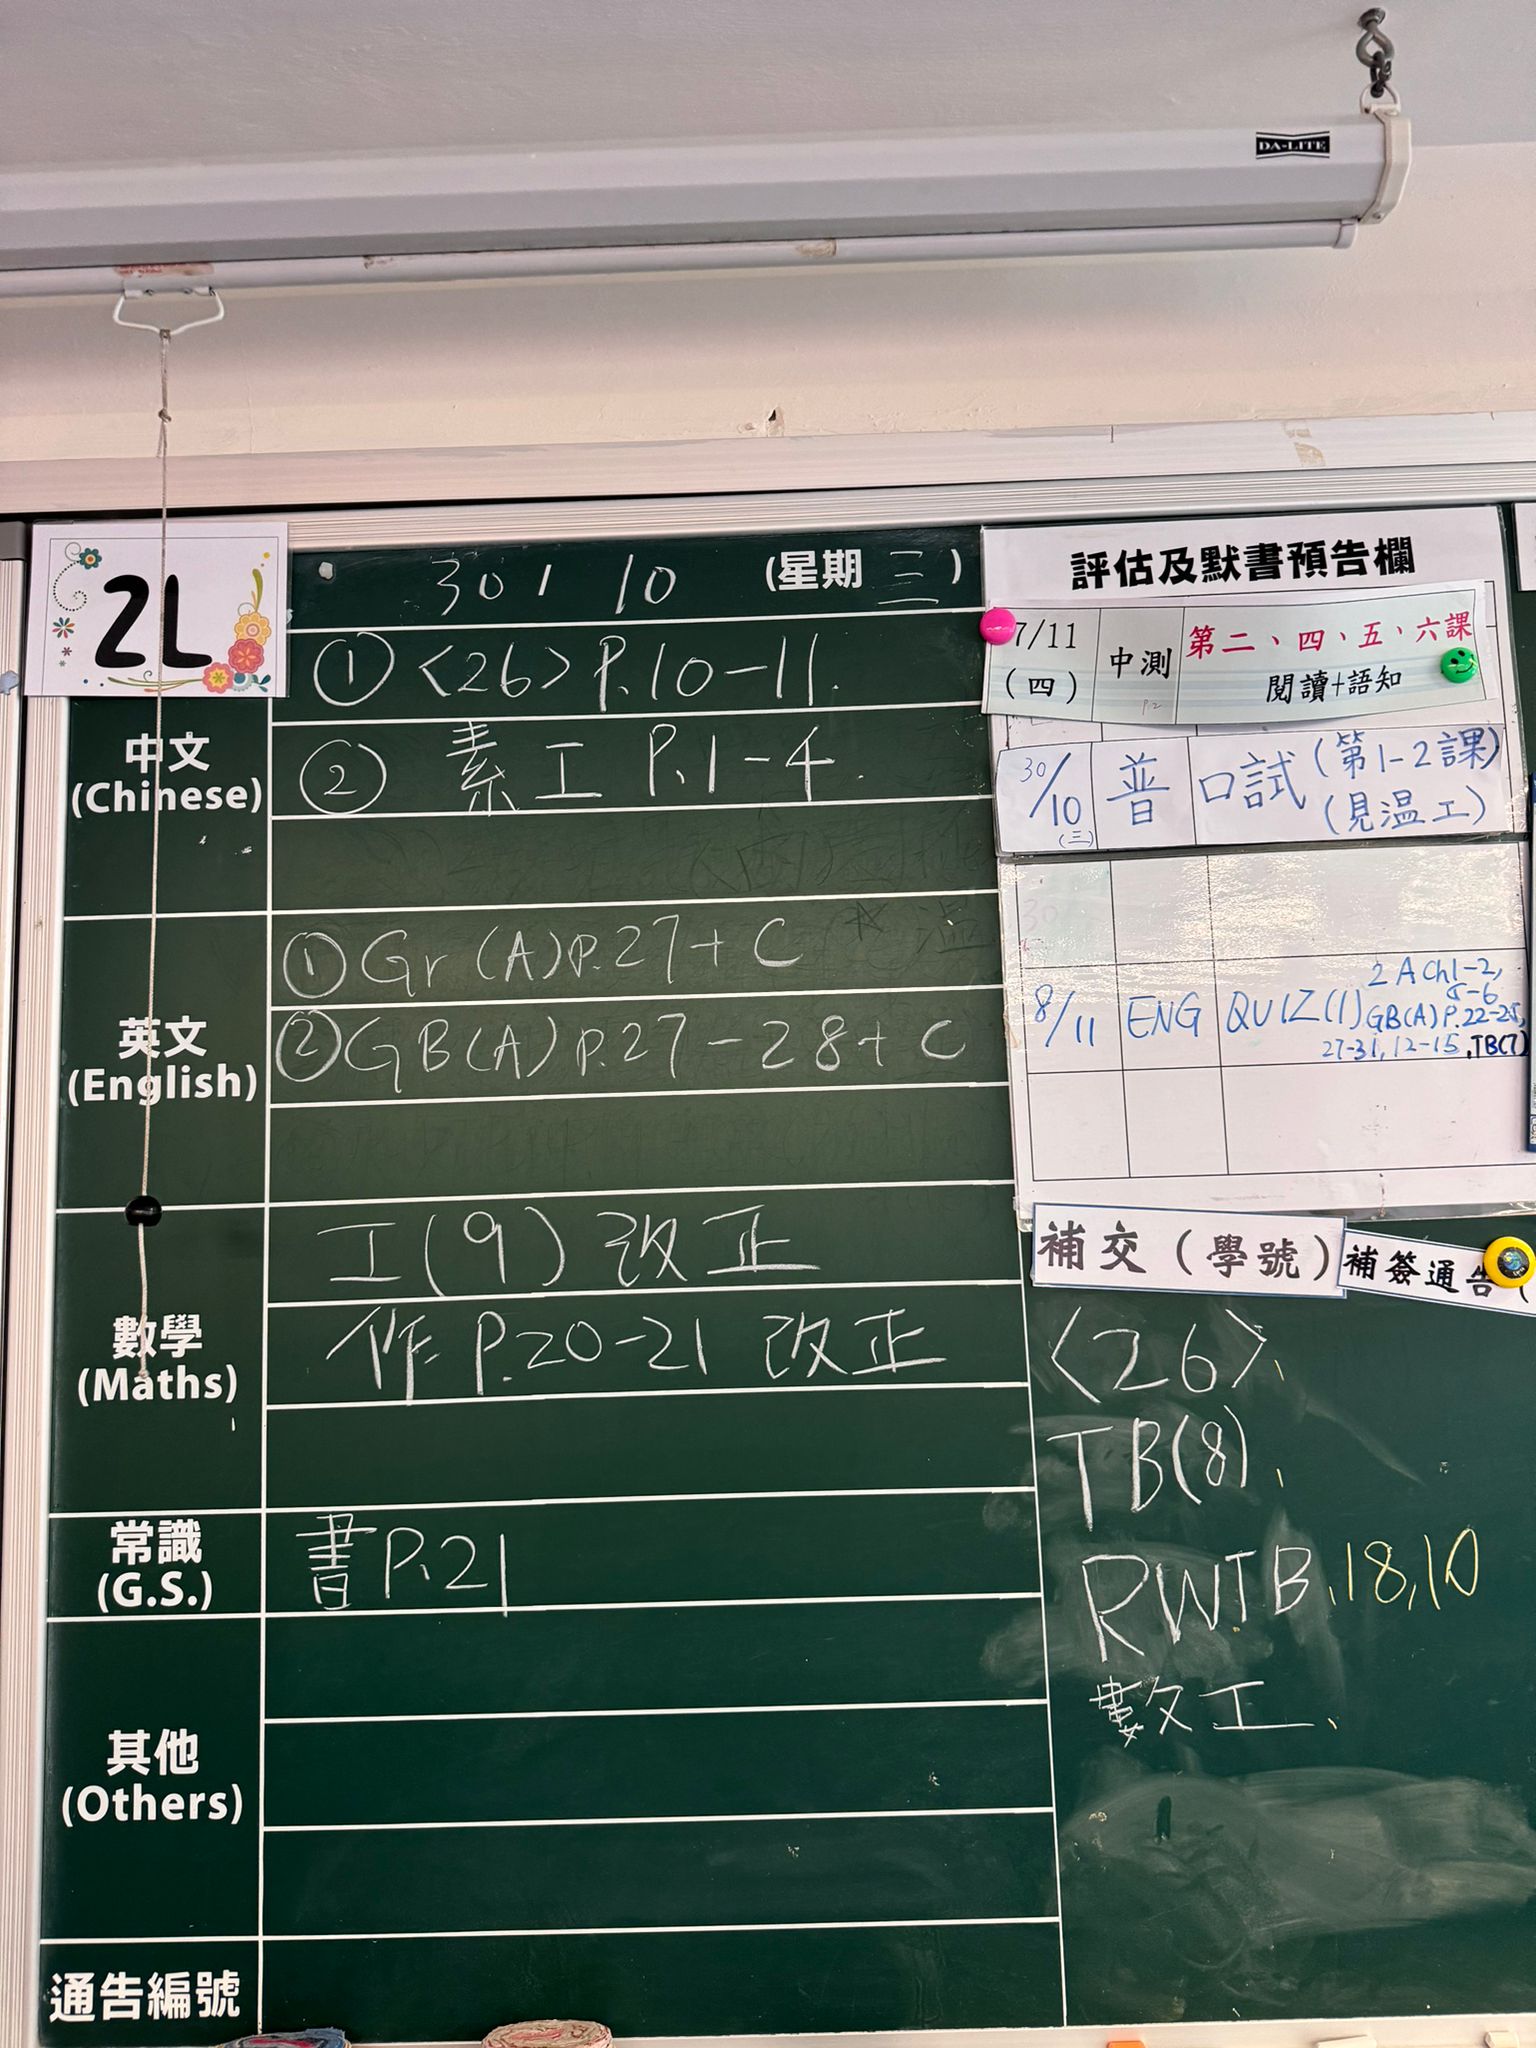 DA-LITE
2L
30 / 10 (星期三)
中文
(Chinese)
① <26> P.10-11.
② 素工 P.1-4.
英文
(English)
① Gr (A) P.27 + C
② GB(A) P.27-28 + C
數學
(Maths)
工(9) 改正
作 P.20-21 改正
常識
(G.S.)
書 P.21
其他
(Others)
通告編號
評估及默書預告欄
7/11
(四)
中測
P.2
第二、四、五、六課
閱讀+語知
30/10
(三)
普
口試 (第1-2課)
(見温工)
30
8/11
ENG
QUIZ(1)
2A Ch1-2,
5-6
GB(A) P.22-25,
27-31, 12-15, TB(7)
補交(學號)
補簽通告(
<26>、
TB(8)、
RWTB、18,10
數工、